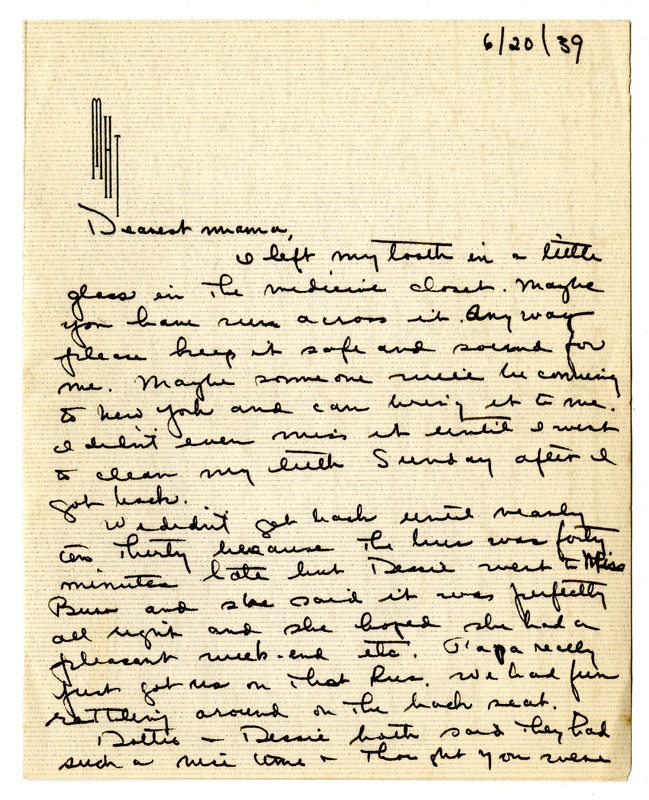 6/20/39
MHT
Dearest mama,
I left my tooth in a little
glass in the medicine closet. Maybe
you have run across it. Anyway
please keep it safe and sound for
me. Maybe someone will be coming
to New York and can bring it to me.
I didn't even miss it until I went
to clean my teeth Sunday after I
got back.
We didn't get back until nearly
ten thirty because the bus was forty
minutes late but Dessie went to Miss
and she said it was perfectly
all right and she hoped she had a
pleasant week-end etc. Papa really
just got us on that bus. We had fun
rattling around on the back seat.
Dottie + Dessie both said they had
such a nice time + thought you were